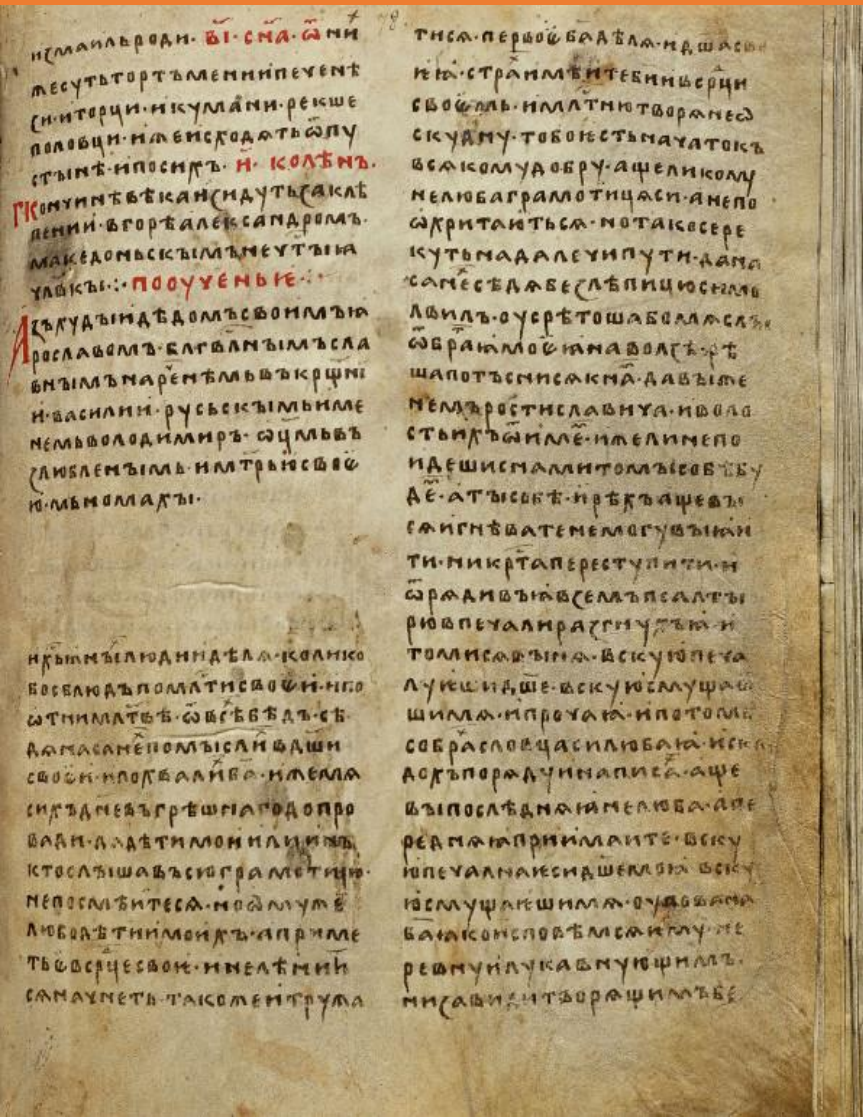 измаильроди· в҃і· сн҃а· ѿни
жесутьтортъмениипеченѣ
зи·иторци·икумани·рекше
половци·ижеисходятьѿпу
стынѣ·ипосихъ· и҃· колѣнъ·
кончинѣвѣкаизидутьзаклѣ
пении·вгорѣалександромъ·
македоньскымънеч̑тыꙗ
чл҃вкы·:· поученье·:·
Азъхудыидѣдомъсвоимъꙗ
рославомъ·бл҃гвлн҃ымъсла
внымънаре҃нѣмьвъкрщ҃ні
и·василии·русьскымьиме
немьволодимиръ·ѡц҃мьвъ
злюбленымь·имт҃рьюсвоѥ
ю·мьномахы·
ихъꙗныхлюдиидѣлѧ·колико
бособлюдъпомлт҃исвоѥи·ипо
ѡтнимлт҃вѣ·ѿвсѣ̑бѣдъ·сѣ
дѧнасане̑помысли̑вдш҃и
своѥи·ипохвали̑ба·̑ижемѧ
сихъдневъгрѣшнагодопро
вади·дадѣтимоиилиинъ
ктослышавъсюграмотицю·
непосмѣитесѧ·ноѡмуже̑
любодѣтиимоихъ·априме
тьѥвср҃цесвоѥ·инелѣни
сѧначнеть·такожеитружа
тисѧ·первоѥба҃дѣлѧ·идш҃асво
еꙗ·стра̑имѣитебиивср҃ци
своѥмь·имлт҃нютворѧнеѡ
скудну·тобоестьначатокъ
всѧкомудобру·ащеликому
нелюбаграмотицѧси·анепо
ѡхритаютьсѧ·нотакосере
кутьнадалечипути·дана
сане̑сѣдѧбезлѣпицюсимо
лвилъ·оусрѣтошабомѧслъ
ѿбра̑ꙗмоеꙗнаволзѣ·рѣ
шапотъснисѧкна̑·давыже
немъростиславича·иволо
стьихъѿиме̑·ижелинепо
идешиснамитомысобѣбу
де̑·атысобѣ·ирѣхъащевы
сѧигнѣватенемогувыꙗи
ти·никрт҃апереступити·и
ѿрѧдивъꙗвземъпсалты
рювпечалиразгнухъꙗ·и
томисѧвынѧ·вскуюпеча
луѥшидш҃е·вскуюсмущаѥ
шимѧ·ипрочаꙗ·ипотомь
собра̑словцасилюбаꙗ·искла
дохъпорѧдуинаписа̑·аще
выпослѣднѧꙗнелюба·апе
реднѧꙗприимаите·вску
юпечалнаесидш҃емоꙗ вску
юсмущаешимѧ·оуповаина
ба҃ꙗкоисповѣмсѧиму·не
ревнуилукавнующимъ·
низавидитворѧщимъбе